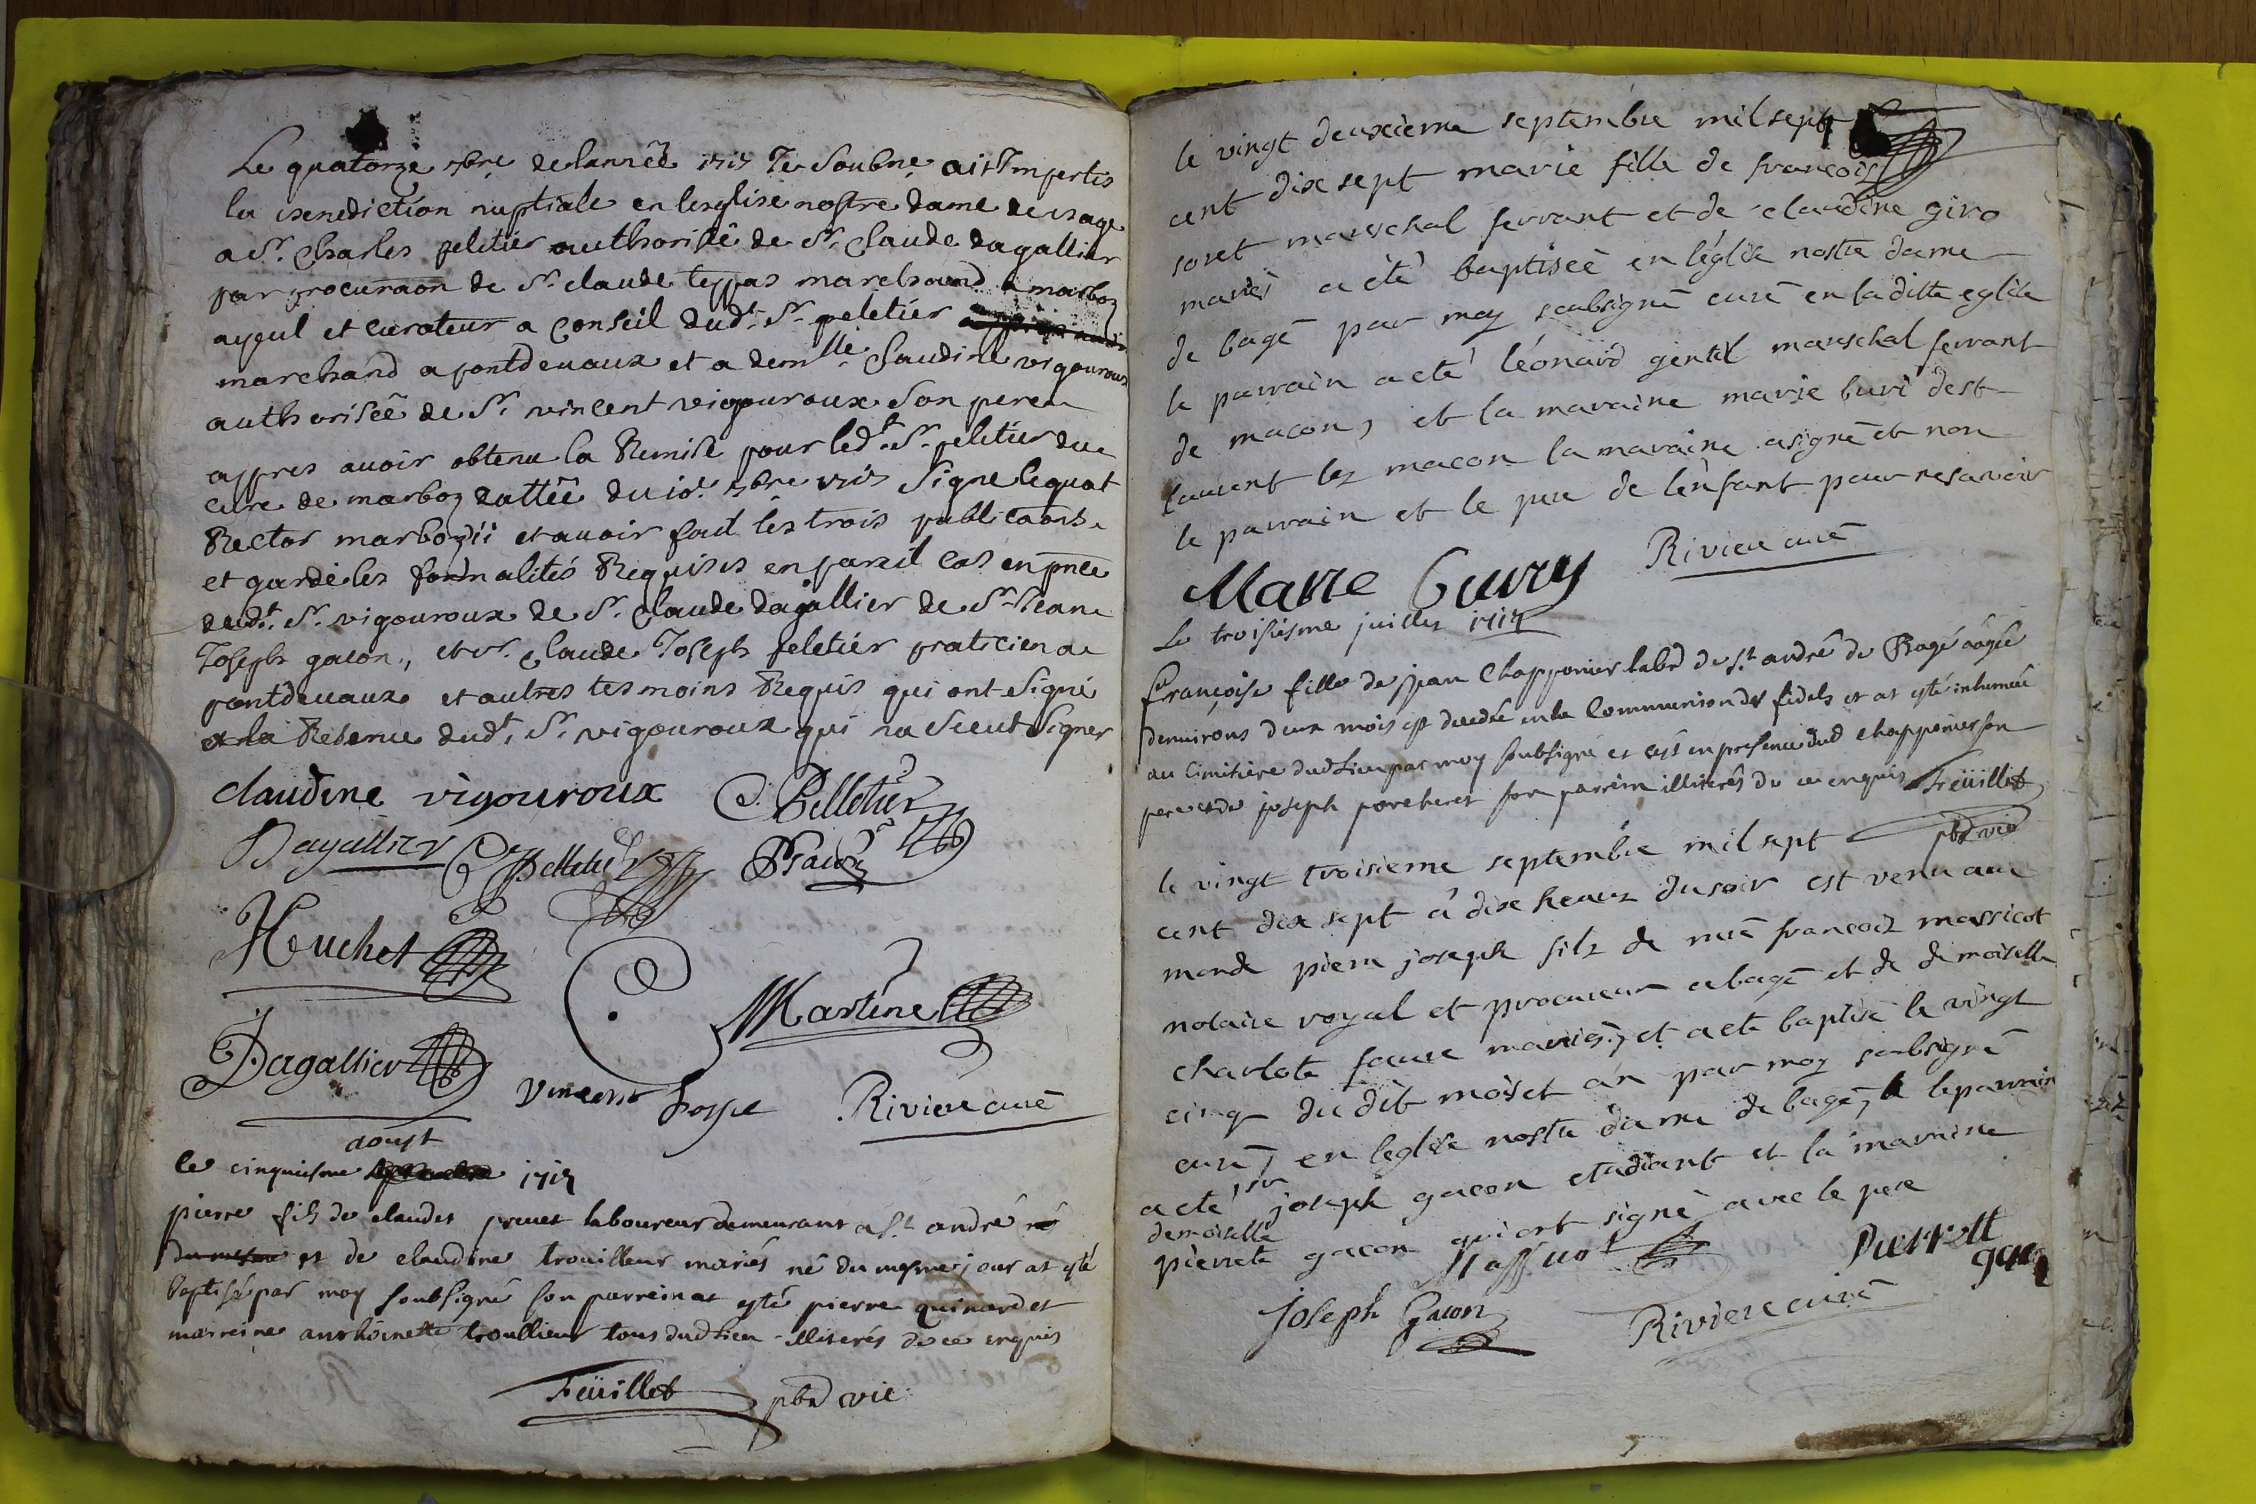 Le quatorze 7bre de lannëe 1717 Je Soubne ait Impertis
la benediction nuptiale en lesglise nostre dame de bage
a Sr. Charles peletier authorisé de Sr. Claude dagallier
par procuraon de Sr. claude teppas marchand a marboz
ayeul et curateur a Conseil dudt. Sr. peletier
marchand a pontdevaux et a demlle. Claudine vigouroux
authorisée de Sr. vincent vigouroux Son pere
appres avoir obtenu la Remise pour ledt. Sr. peletier du
Cure de marboz dattëe du 10e. 7bre 1717 Signe
Rector marbozii et avoir fait les trois publicaons
et gardé les formalités Requises en pareil Cas en pnce
dudt. Sr. vigouroux de Sr. Claude dagallier de Sr. Jean
Joseph gacon, et Sr. Claude Joseph peletier praticien a
pontdevaux et autres tesmoins Requis qui ont Signé
a la Reserve dudt. Sr. vigouroux qui na Sceut Signer
claudine vigouroux C. Pelletier
Dagallier Pelletier Gacon
Huchet
Martine
Dagallier Vincent Riviere curé
aoust
le cinquiesme septembre 1717
pierre fils de claude prevet laboureur demeurant a St. andré né
du mesme et de claudine trouilleux mariés né du mesme jour at esté
baptisé par moy soubsigné son parrein at esté pierre quinard et
marreine anthoinette troullieux tous dud lieu illiterés de ce enquis
Feüillet pbr vic
le vingt deuxieme septembre mil sept
cent dix sept marie fille de francois
soret mareschal ferrant et de claudine giro
mariés a été baptiseè en l'église nostre dame
de bagé par moy soubsigné curé en laditte eglise
le parrain a eté léonard gentil mareschal ferrant
de macon, et la maraine marie buri dest
laurent lez macon la maraine a signé et non
le parrain et le pere de lenfant pour ne savoir
Riviere curé
Marie Bury
Le troisiesme juillet 1717
françoise fille de jean Chapponier labr de St. andré de Bagé aagée
denvirons deux mois est decedée en la Communion des fidels et at esté inhumée
au Cimitiere dud lieu par moy soubsigné et cest en presence dud chapponier son
pere et de joseph porcheret son parrein illiterés de ce enquis Feüillet
pbr vic
le vingt troisieme septembre mil sept
cent dix sept á dix heures du soir est venu au
monde piere joseph fils de me francois massicot
notaire royal et procureur a bagé et de demoiselle
charlote faure mariés, et a eté baptisé le vingt
cinq du dit mois et an par moy soubsigné
curé, en leglise nostre dame de bagé, le parrain
a eté sr joseph gacon etudiant et la maraine
demoiselle
pierrete gacon qui ont signé avec le pere
Massicot Pierrette
gacon
Joseph Gacon Riviere curé